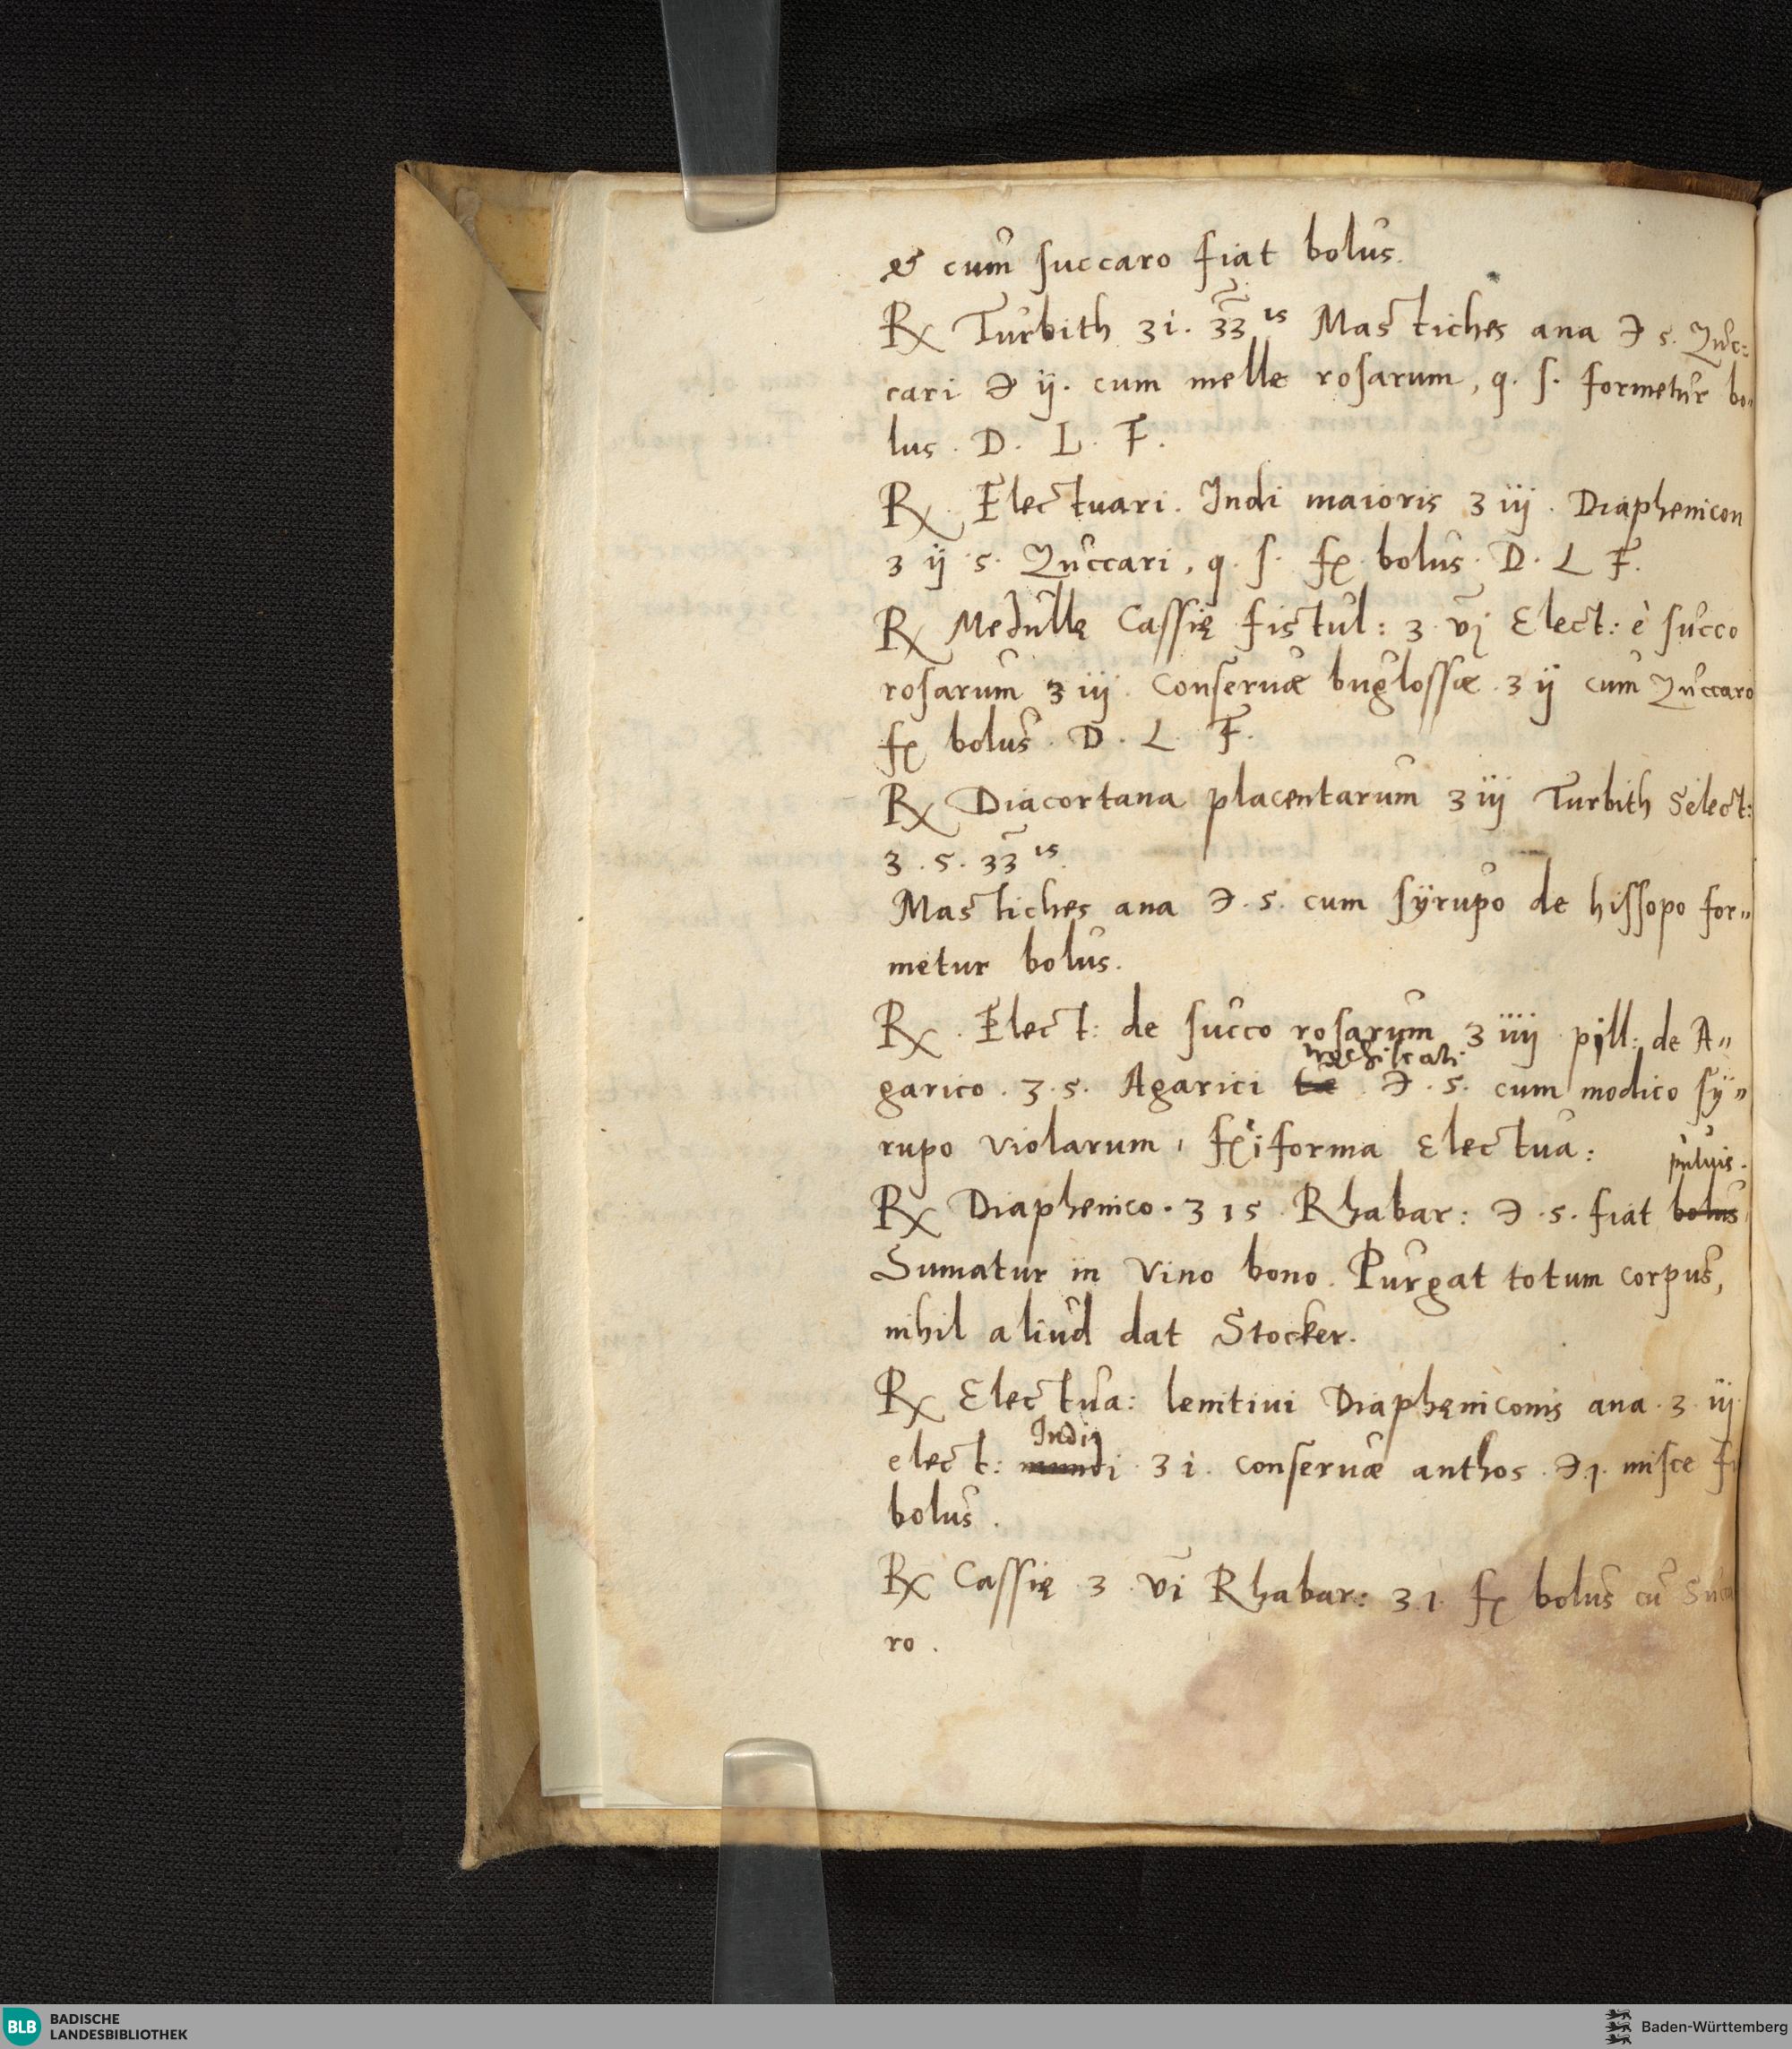 & cum succaro fiat bolus.
℞ Turbith ʒ i. ʒʒ is Mastiches ana ℈ s. Zuc:
cari ℈ ij. cum melle rosarum, q. s. formetur bo„
lus. D. L. F.
℞. Electuari. Indi maioris ʒ iij. Diaphenicon
ʒ ij s. Zuccari, q. s. fx bolus. D. L F.
℞ Medullę Cassię fistul: ʒ vj Elect: è succo
rosarum ʒ iij. Conseruæ buglossæ ʒ ij cum Zuccaro
fx bolus. D. L. F.
℞ Diacortana placentarum ʒ iij Turbith Select:
ʒ. s. ʒʒ is.
Mastiches ana ℈. s. cum sÿrupo de hissopo for„
metur bolus.
℞. Elect: de succo rosarum ʒ iiij pill: de A„
trochiscati.
garico. ʒ. s. Agarici ℈. s. cum modico sÿ„
rupo violarum, fx i forma Electua:
puluis.
℞ Diaphenico. ʒ is. Rhabar: ℈. s. fiat bolus
Sumatur in vino bono. Purgat totum corpus,
nihil aliud dat Stocker.
℞ Electua: lenitiui Diaphęniconis ana. ʒ. iij.
Indi
elect: mundi. ʒ i. conseruæ anthos. ℈. j. misce
bolus.
℞ Cassię ʒ. vi Rhabar: ʒ. i. fx bolus cū Succa
ro.
BLB BADISCHE
LANDESBIBLIOTHEK
Baden-Württemberg